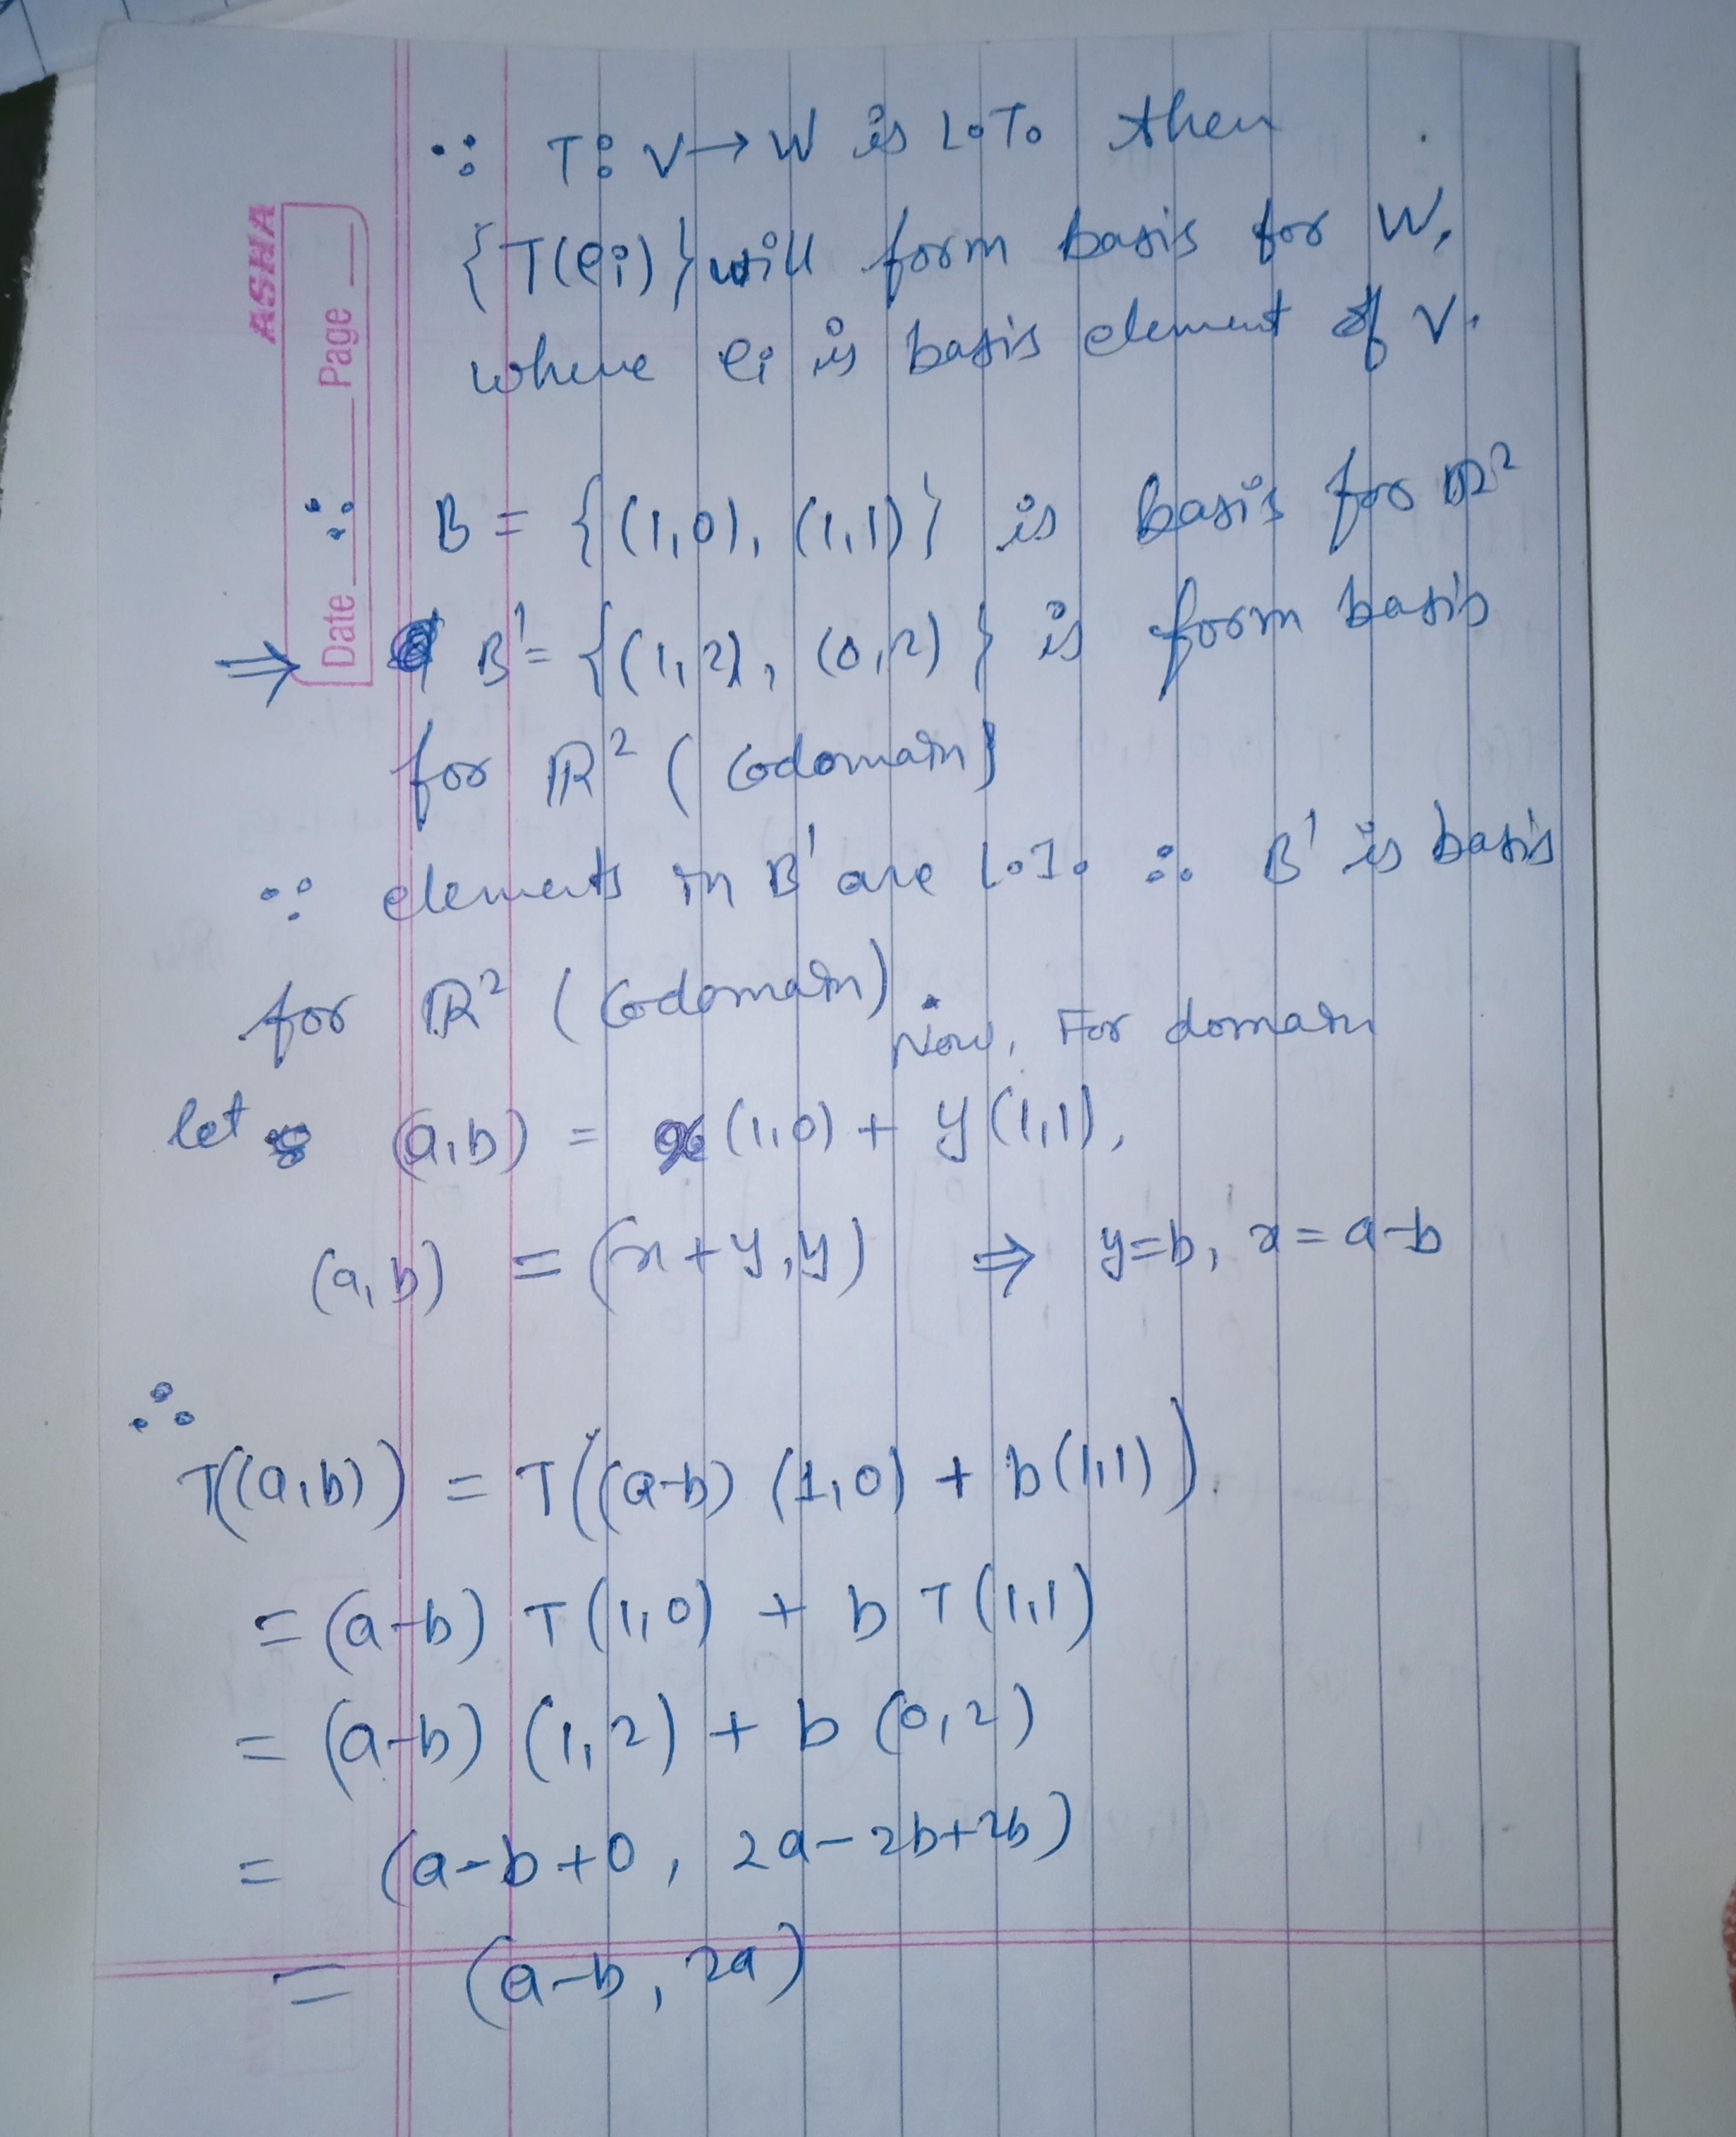 ∵ T: V → W is L.T. then
{T(ei)} will form basis for W,
where ei is basis element of V.
∵ B = {(1,0), (1,1)} is basis for ℝ²
⇒ B' = {(1,2), (0,2)} is form basis
for ℝ² (Codomain)
∵ elements in B' are L.I. ∴ B' is basis
for ℝ² (Codomain).
Now, For domain
let (a,b) = x(1,0) + y(1,1),
(a,b) = (x+y, y) ⇒ y=b, x=a-b
∴
T((a,b)) = T((a-b) (1,0) + b(1,1))
= (a-b) T(1,0) + b T(1,1)
= (a-b) (1,2) + b (0,2)
= (a-b+0, 2a-2b+2b)
= (a-b, 2a)
ASHA
Date Page